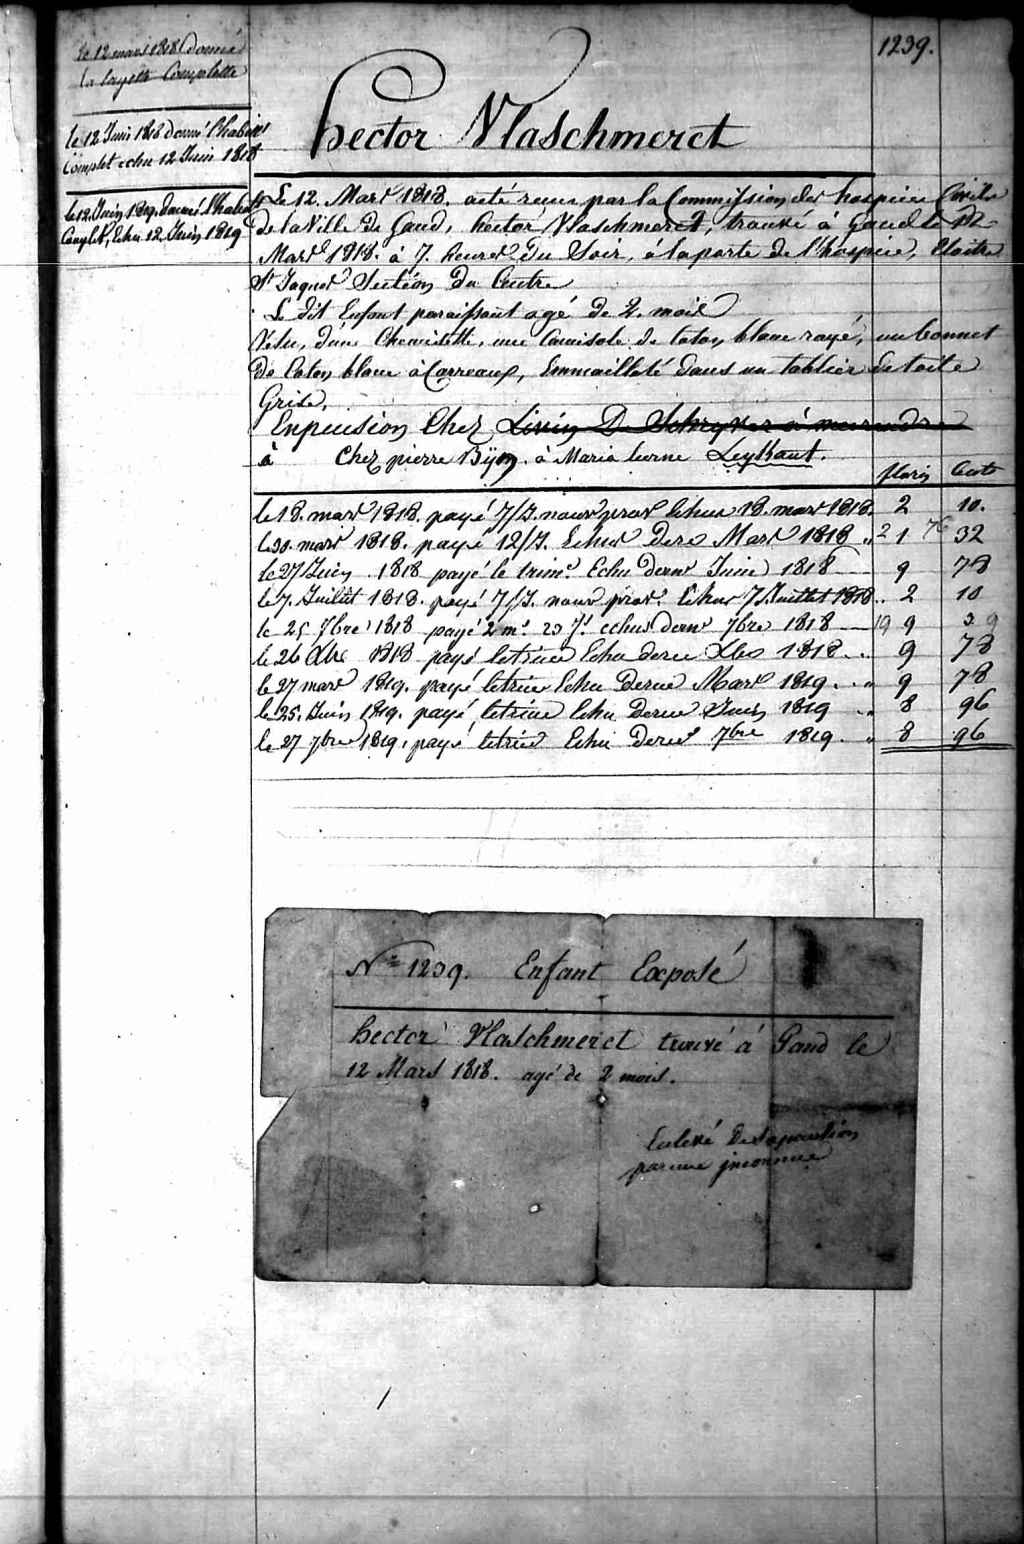 1239.
le 12 mars 1818 donné
la layette Complette
le 12 Juin 1818 donné l'habit
Complet echu 12 Juin 1818
le 12 Juin 1819 donné l'habit
Complet, Echu 12 Juin 1819
hector Vlaschmeret
Le 12. Mars 1818. a été recu par la Commission des hospices Civils
de la Ville de Gand, hector Vlaschmeret, trouvé à Gand le 12
Mars 1818. à 7. heures du Soir, à la porte de l'hospice, Cloitre
St Jaques Section du Centre
Le dit Enfant paraissant agé de 2. mois
Vetu, d'une Chemisette, une Camisole de Coton blanc rayé, un bonnet
de Coton blanc à Carreaux, Emmailloté dans un tablier de toile
Grise.
En pension Chez Livin De Schryver à
à Chez pierre Bÿn. à Maria Leerne Leykaut.
florins Cents
le 18. mars 1818. payé 7/J. nour prov Echus 18. mars 1818. 2 10.
le 30. mars 1818. payé 12/J. Echus Dern Mars 1818 " 2 1 76 32
le 27 Juin 1818 payé le trime. Echu dern Juin 1818 9 78
le 7. Juillet 1818. payé 7/J. nour prov. Echus 7 Juillet 1818 .. 2 10
le 25 7bre 1818 payé 2 ms. 23 Js. echus dern 7bre 1818 19 9 39
le 26 Xbre 1818 payé le trime Echu dern Xbre 1818 .. 9 78
le 27 mars 1819. payé le trime Echu Dern Mars 1819 . " 9 78
le 25. Juin 1819. payé le trime Echu Dern Juin 1819 " 8 96
le 27 7bre 1819, payé le trime Echu Dern 7bre 1819. " 8 96
No 1239. Enfant Exposé
hector Vlaschmeret trouvé à Gand le
12 Mars 1818. agé de 2 mois.
Enlevé de sa pension
par une inconnue